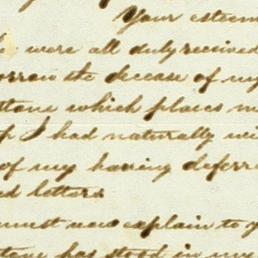 Your esteem
were all duly received
orrow the decease of my
ttene which places m
p I had naturally wi
of my having deferr
ed letters
must now explain to y
tene has stood in my